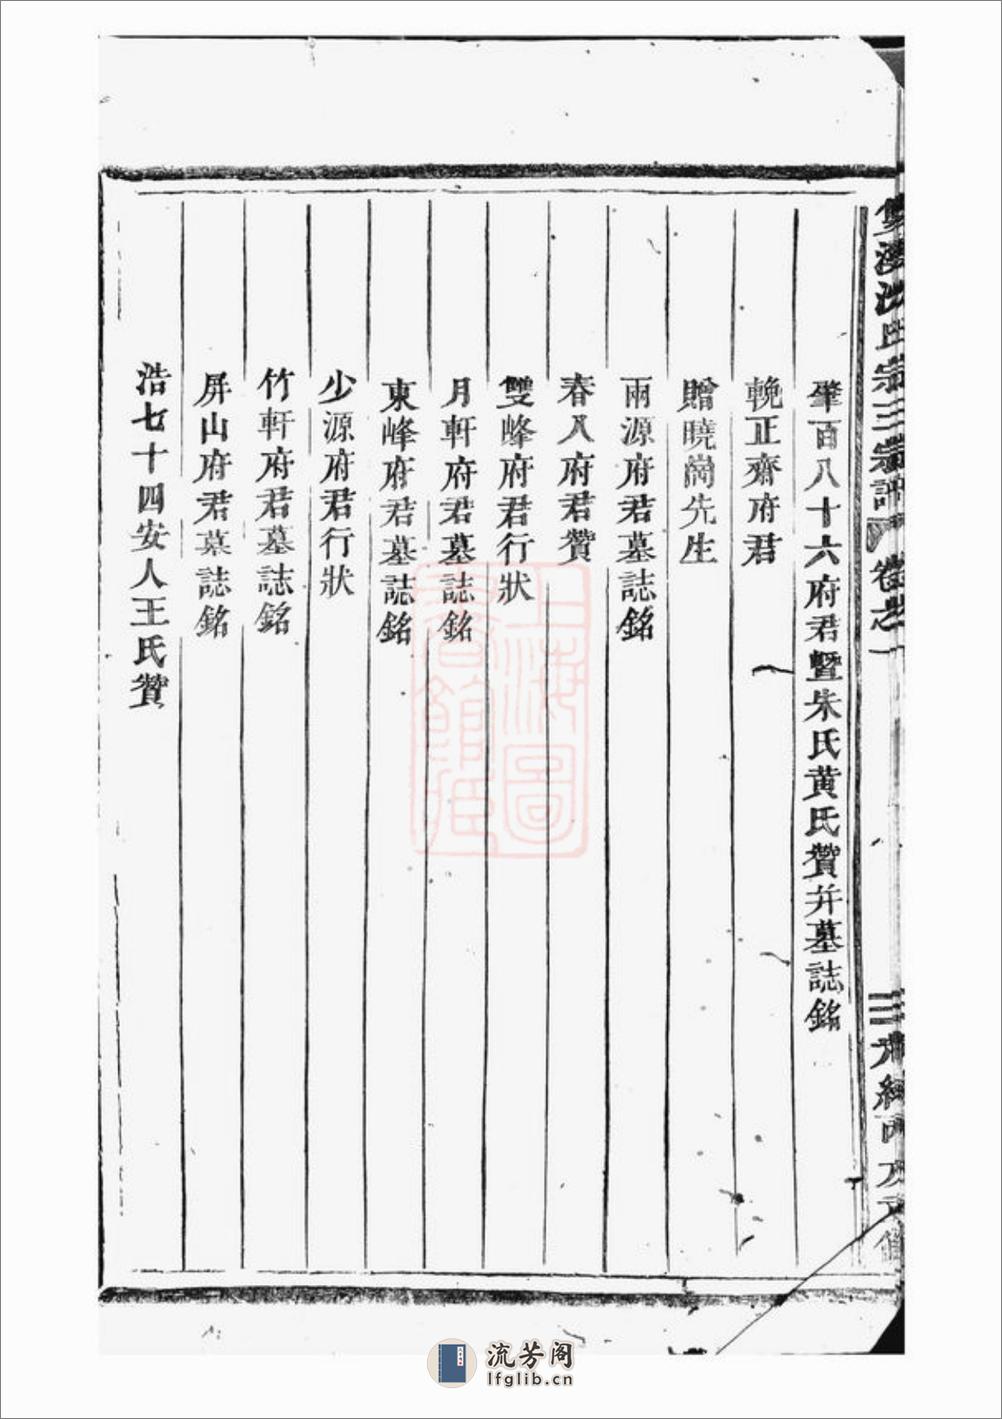 肇百八十六府君暨朱氏黄氏贊并墓誌銘
輓正齋府君
贈曉崗先生
兩源府君墓誌銘
春八府君贊
雙峰府君行狀
月軒府君墓誌銘
東峰府君墓誌銘
少源府君行狀
竹軒府君墓誌銘
屏山府君墓誌銘
浩七十四安人王氏贊
卷之一
上海圖
書館藏
流芳阁
lfglib.cn